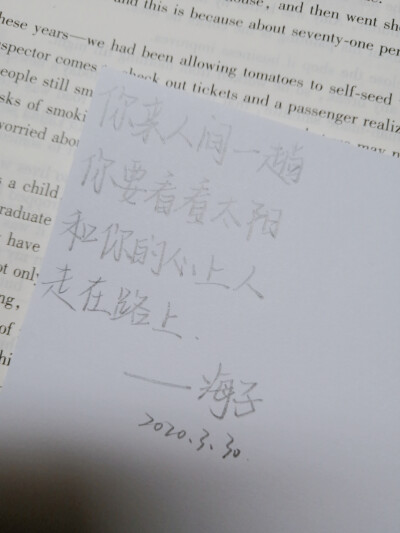 ouse, and then went sh
nd this is because about seventy-one per
hese years—we had been allowing tomatoes to self-seed
spector comes to check out tickets and a passenger realiz
eople still sm
sks of smoki
may n
worried abou
s a child
raduate
have
ot only
ng,
of
hi
你来人间一趟
你要看看太阳
和你的心上人
走在路上.
——海子
2020.3.30.